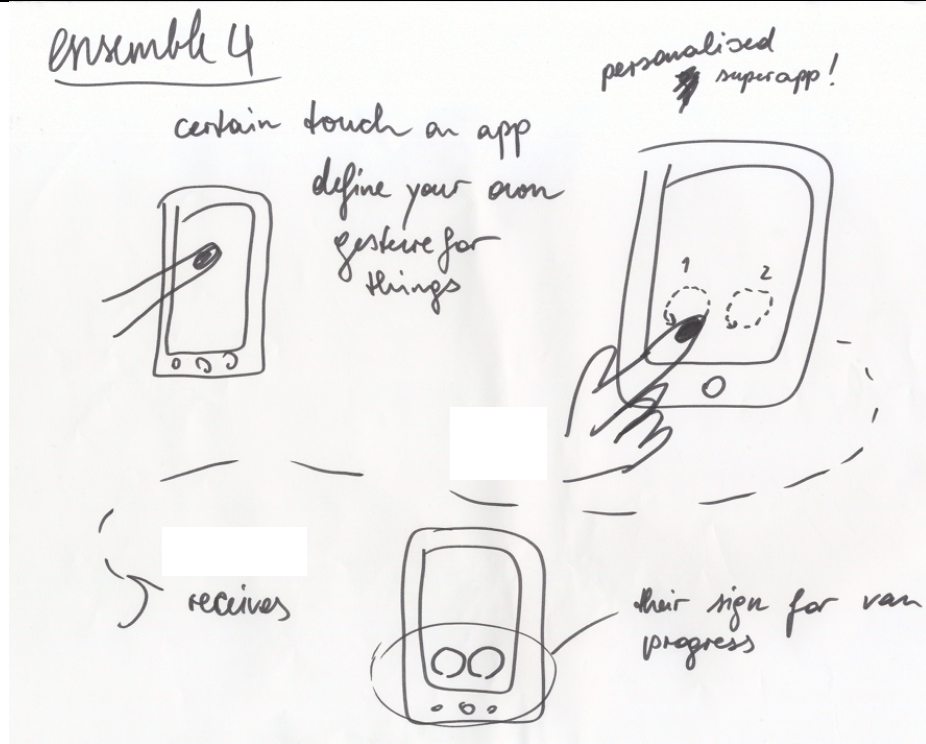 ensemble 4
personalised
superapp!
certain touch on app
define your own
gesture for
things
1 2
receives
their sign for van
progress